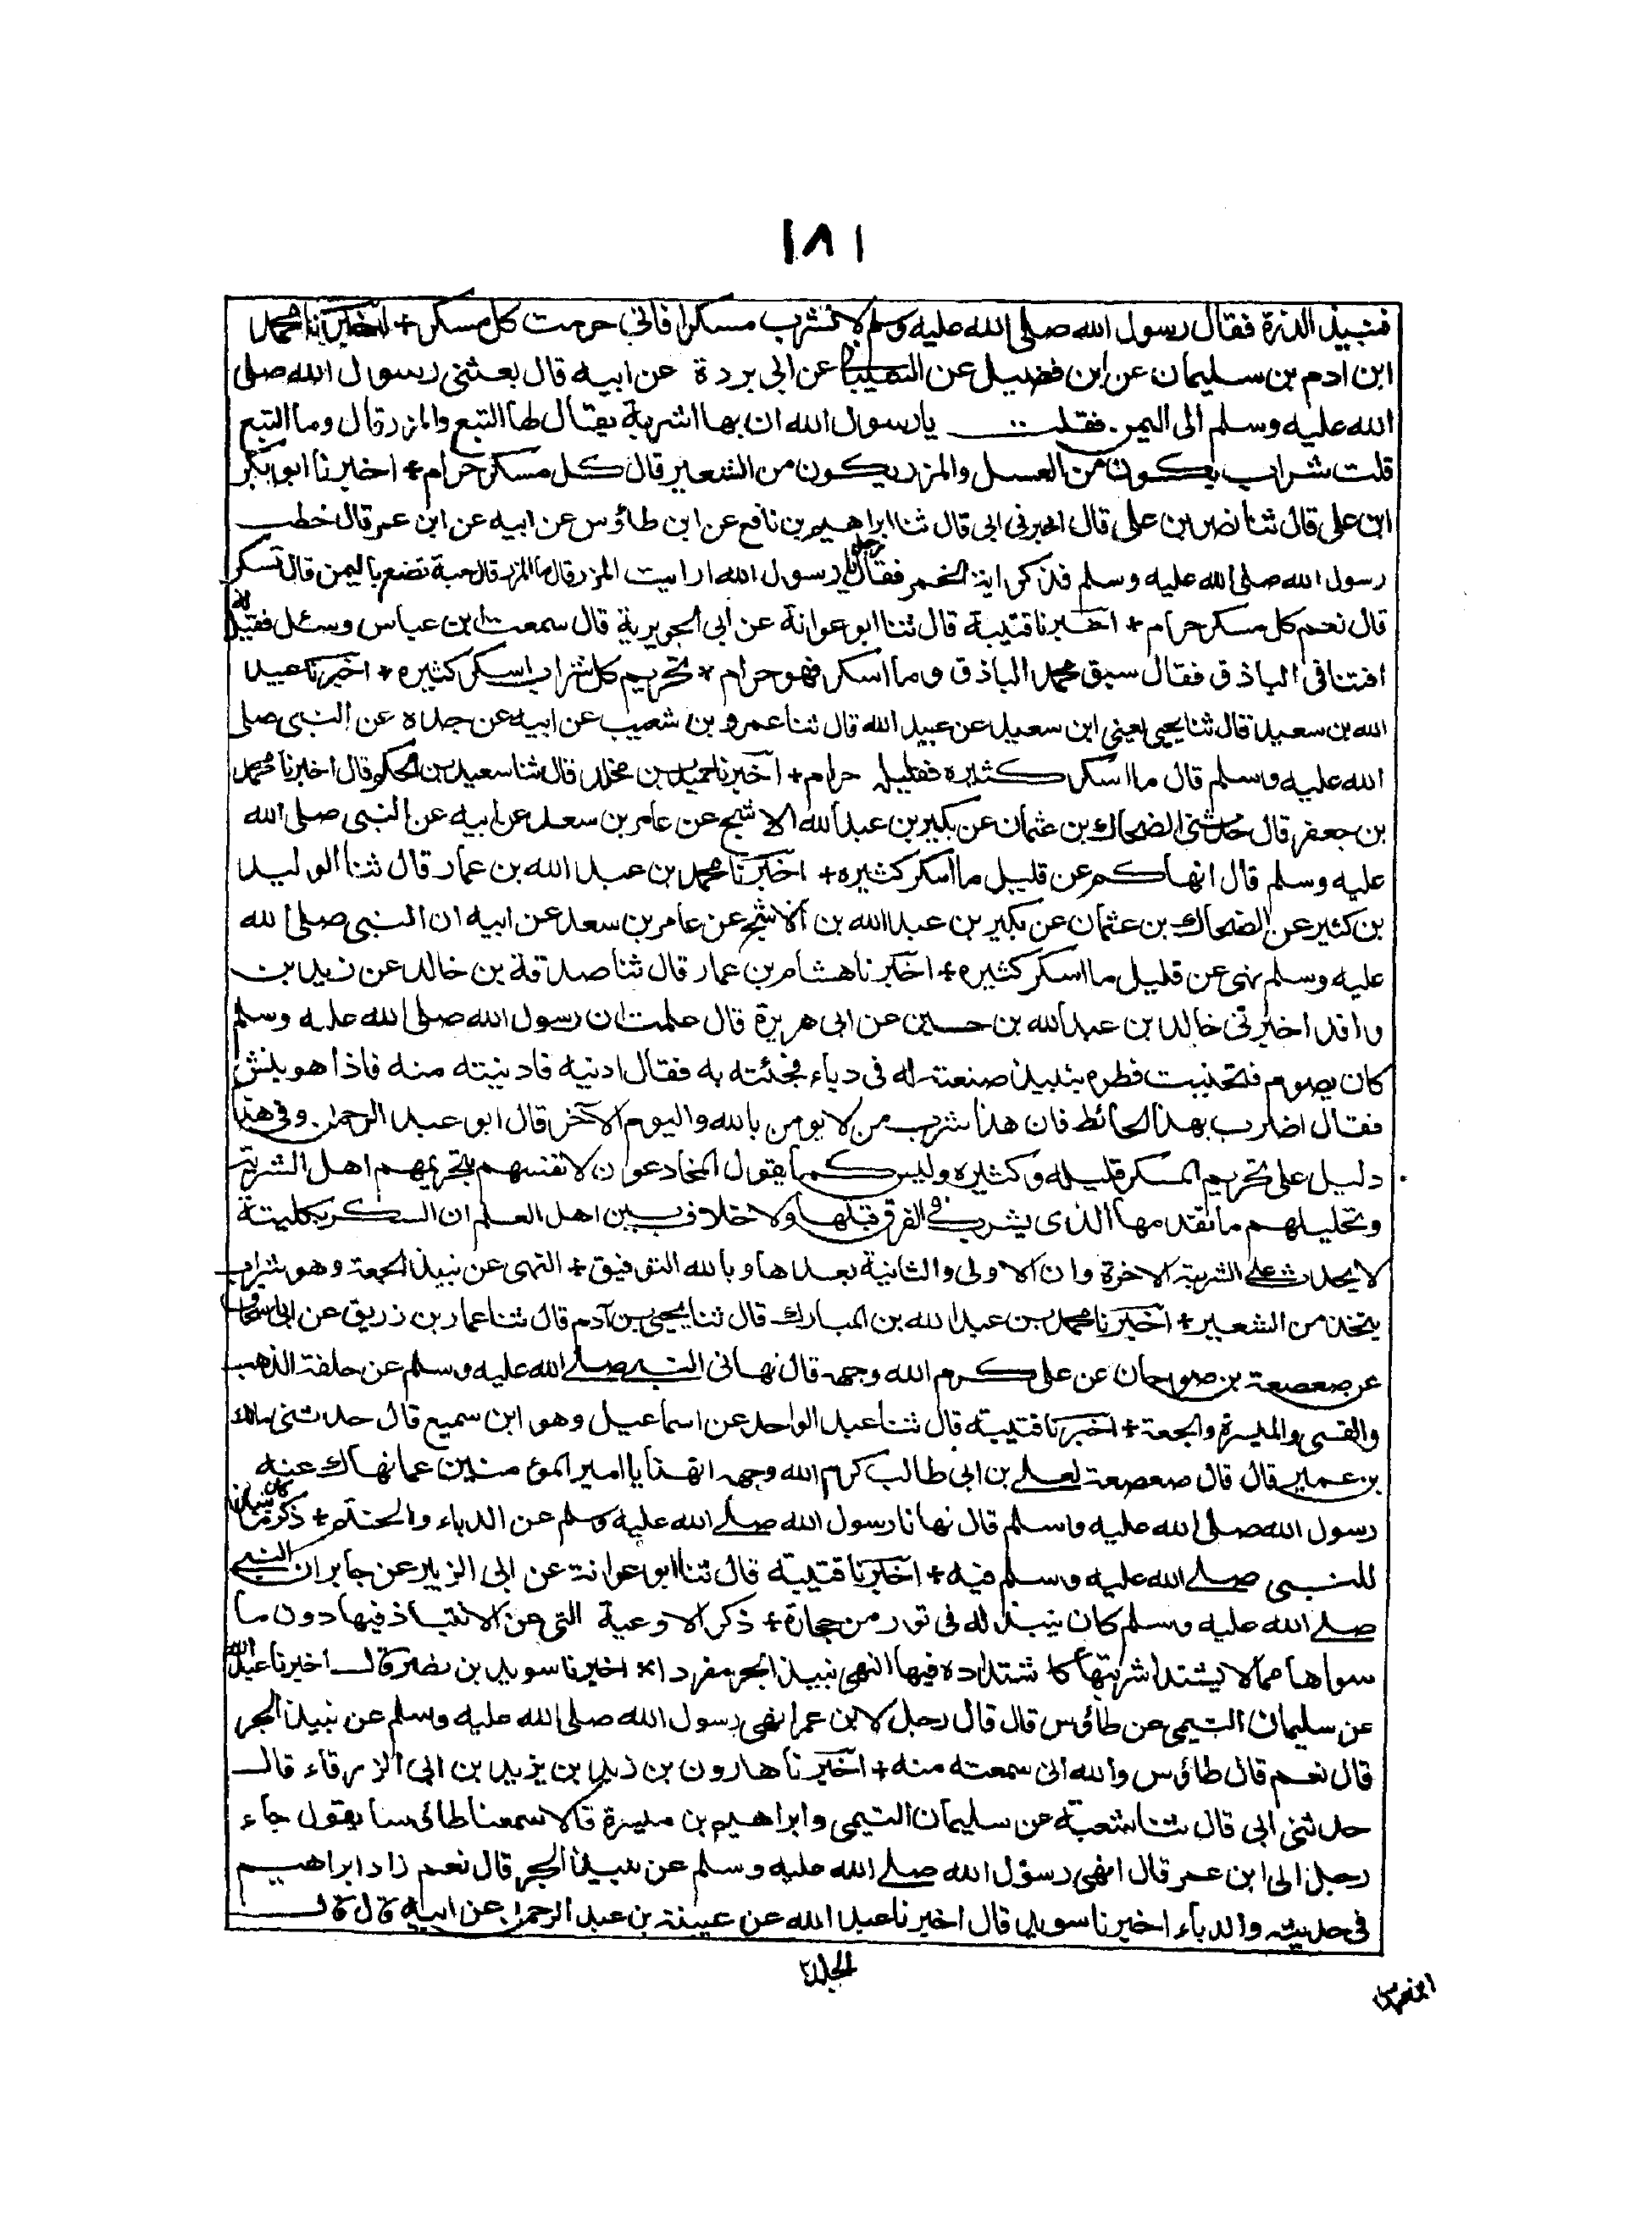 ١٨١
فنبيذ الذرة فقال رسول الله صلى الله عليه وسلم لا تشرب مسكرا فاني حرمت كل مسكر + اخبرنا محمد
ابن ادم بن سليمان عن ابن فضيل عن الشيباني عن ابي بردة عن ابيه قال بعثني رسول الله صلى
الله عليه وسلم الى اليمن فقلت يا رسول الله ان بها اشربة يقال لها التبع والمزر قال وما التبع
قلت شراب يكون من العسل والمزر يكون من الشعير قال كل مسكر حرام + اخبرنا ابو بكر
ابن على قال ثنا نصر بن على قال اخبرني ابى قال ثنا ابراهيم بن نافع عن ابن طاؤس عن ابيه عن ابن عمر قال خطب
رسول الله صلى الله عليه وسلم فذكر اية الخمر فقال رجل يا رسول الله ارايت المزر قال ما المزر قال حبة تضع باليمن قال تسكر
قال نعم كل مسكر حرام + اخبرنا قتيبة قال ثنا ابو عوانة عن ابى الجويرية قال سمعت ابن عباس وسئل فقيل له
افتنا فى الباذق فقال سبق محمد الباذق وما اسكر فهو حرام + تحريم كل شراب اسكر كثيره + اخبرنا عبيد
الله بن سعيد قال ثنا يحيى يعنى ابن سعيد عن عبيد الله قال ثنا عمرو بن شعيب عن ابيه عن جده عن النبى صلى
الله عليه وسلم قال ما اسكر كثيره فقليله حرام + اخبرنا حميد بن مخلد قال ثنا سعيد بن الحكم قال اخبرنا محمد
بن جعفر قال حدثنى الضحاك بن عثمان عن بكير بن عبد الله الاشج عن عامر بن سعد عن ابيه عن النبى صلى الله
عليه وسلم قال انهاكم عن قليل ما اسكر كثيره + اخبرنا محمد بن عبد الله بن عمار قال ثنا الوليد
بن كثير عن الضحاك بن عثمان عن بكير بن عبد الله بن الاشج عن عامر بن سعد عن ابيه ان النبى صلى الله
عليه وسلم نهى عن قليل ما اسكر كثيره + اخبرنا هشام بن عمار قال ثنا صدقة بن خالد عن زيد بن
واقد اخبرنى خالد بن عبد الله بن حسين عن ابى هريرة قال علمت ان رسول الله صلى الله عليه وسلم
كان يصوم فتحينت فطره بنبيذ صنعته له فى دباء فجئته به فقال ادنيه فادنيته منه فاذا هو ينش
فقال اضرب بهذا الحائط فان هذا شرب من لا يومن بالله واليوم الآخر قال ابو عبد الرحمن وفى هذا
دليل على تحريم المسكر قليله وكثيره وليس كما يقول المخادعون لانفسهم بتحريمهم اهل الشربة
وتحليلهم ما تقدمها الذى يشرب فى الفرق قبلها ولا خلاف بين اهل العلم ان السكر بكليته
لا يحدث على الشربة الاخرة وان الاولى والثانية بعدها وبالله التوفيق + النهى عن نبيذ الجعة وهو شراب
يتخذ من الشعير + اخبرنا محمد بن عبد الله بن المبارك قال ثنا يحيى بن آدم قال ثنا عمار بن زريق عن ابى اسحاق
عن صعصعة بن صوحان عن على كرم الله وجهه قال نهانى النبى صلى الله عليه وسلم عن حلقة الذهب
والقسى والميسرة والجعة + اخبرنا قتيبة قال ثنا عبد الواحد عن اسماعيل وهو ابن سميع قال حدثنى مالك
بن عمير قال قال صعصعة لعلى بن ابى طالب كرم الله وجهه انهنا يا امير المومنين عما نهاك عنه
رسول الله صلى الله عليه وسلم قال نهانا رسول الله صلى الله عليه وسلم عن الدباء والحنتم + ذكر ما كان ينبذ
للنبى صلى الله عليه وسلم فيه + اخبرنا قتيبة قال ثنا ابو عوانة عن ابى الزبير عن جابر ان النبى
صلى الله عليه وسلم كان ينبذ له فى تور من حجارة + ذكر الاوعية التى عن الانتباذ فيها دون ما
سواها مما لا يشتد اشربتها كاشتداده فيها النهى نبيذ الجر مفردا + اخبرنا سويد بن نصر قال اخبرنا عبد الله
عن سليمان التيمى عن طاؤس قال قال رجل لابن عمر انهى رسول الله صلى الله عليه وسلم عن نبيذ الجر
قال نعم قال طاؤس والله انى سمعته منه + اخبرنا هارون بن زيد بن يزيد بن ابى الزرقاء قال
حدثنى ابى قال ثنا شعبة عن سليمان التيمى وابراهيم بن ميسرة قالا سمعنا طائسا يقول جاء
رجل الى ابن عمر قال انهى رسول الله صلى الله عليه وسلم عن نبيذ الجر قال نعم زاد ابراهيم
فى حديثه والدباء اخبرنا سويد قال اخبرنا عبد الله عن عيينة بن عبد الرحمن عن ابيه قال قال
المجلد٢